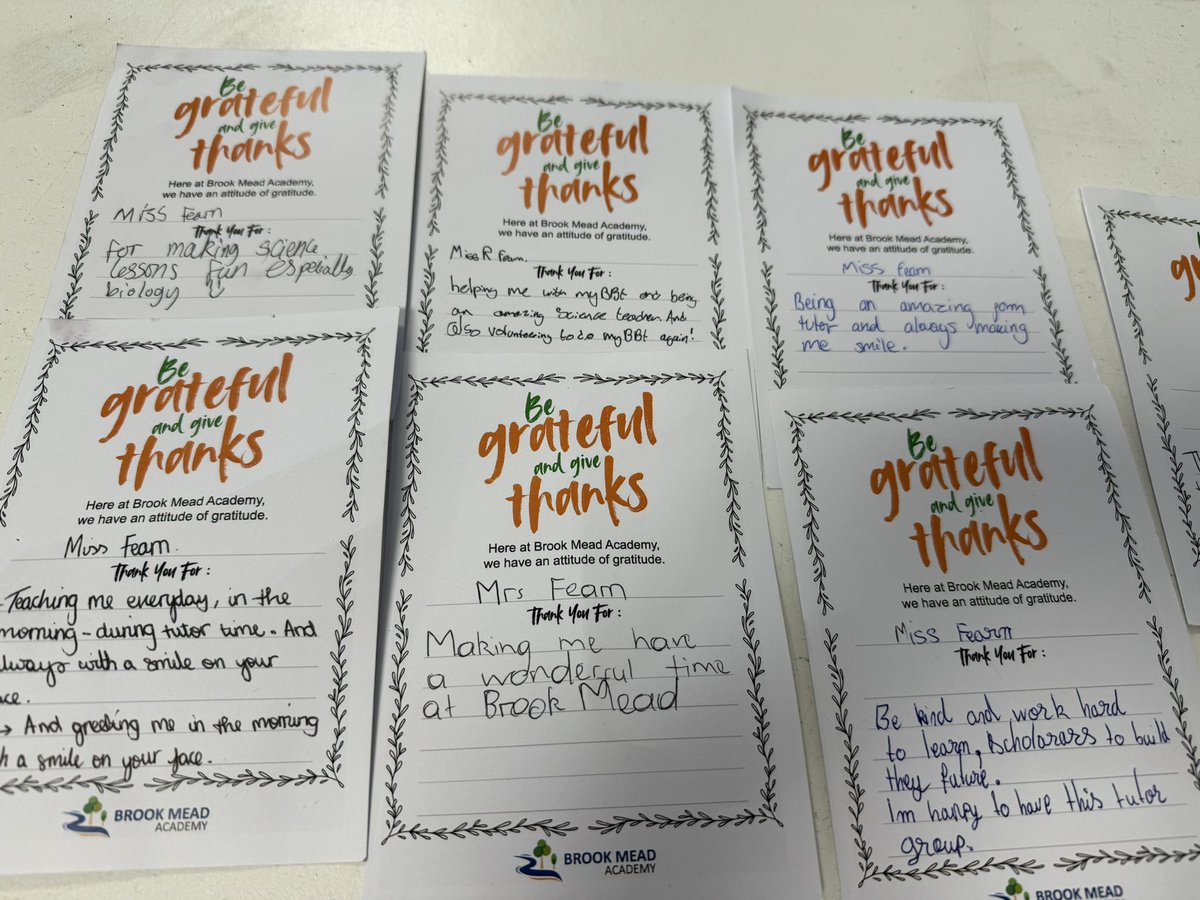 Be
grateful
and give
thanks
Here at Brook Mead Academy,
we have an attitude of gratitude.
Miss Fearn
Thank You For:
For making science
lessons fun especially
biology
Be
grateful
and give
thanks
Here at Brook Mead Academy,
we have an attitude of gratitude.
Miss R Fearn
Thank You For:
helping me with my BBt and being
an amazing science teacher. And
also volunteering to do my BBt again!
Be
grateful
and give
thanks
Here at Brook Mead Academy,
we have an attitude of gratitude.
Miss Fearn
Thank You For:
Being an amazing form
tutor and always making
me smile.
Be
grateful
and give
thanks
Here at Brook Mead Academy,
we have an attitude of gratitude.
Miss Fearn.
Thank You For:
Teaching me everyday, in the
morning - during tutor time. And
always with a smile on your
→ And greeting me in the morning
a smile on your face.
BROOK MEAD
ACADEMY
Be
grateful
and give
thanks
Here at Brook Mead Academy,
we have an attitude of gratitude.
Mrs Fearn
Thank You For:
Making me have
a wonderful time
at Brook Mead
BROOK MEAD
ACADEMY
Be
grateful
and give
thanks
Here at Brook Mead Academy,
we have an attitude of gratitude.
Miss Fearn
Thank You For:
Be kind and work hard
to learn, scholarars to build
they future.
Im happy to have this tutor
group.
BROOK MEAD